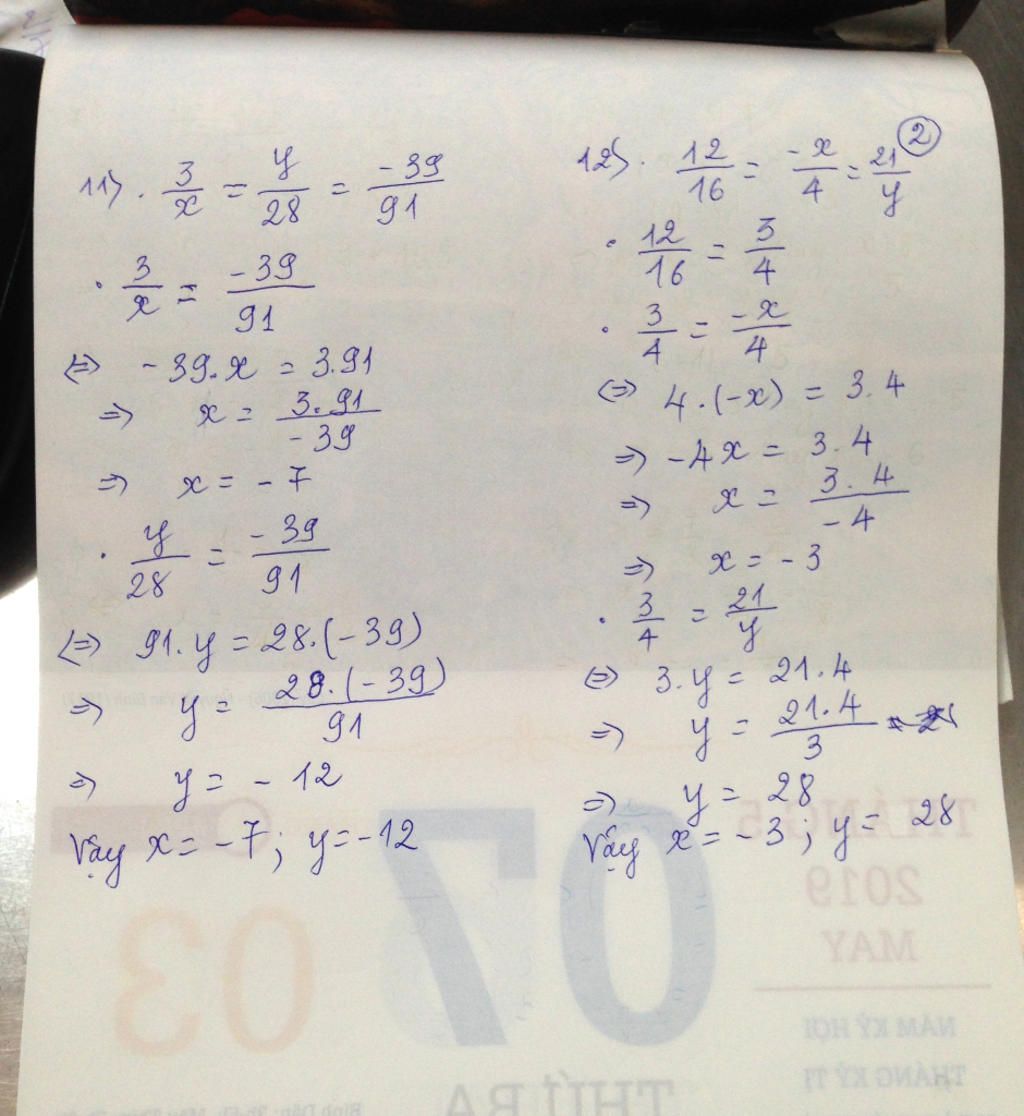 ②
11) . 3/x = y/28 = -39/91
. 3/x = -39/91
⇔ -39.x = 3.91
⇒ x = 3.91/-39
⇒ x = -7
. y/28 = -39/91
⇔ 91.y = 28.(-39)
⇒ y = 28.(-39)/91
⇒ y = -12
Vậy x = -7; y = -12
12) . 12/16 = -x/4 = 21/y
. 12/16 = 3/4
. 3/4 = -x/4
⇔ 4.(-x) = 3.4
⇒ -4x = 3.4
⇒ x = 3.4/-4
⇒ x = -3
. 3/4 = 21/y
⇔ 3.y = 21.4
⇒ y = 21.4/3
⇒ y = 28
Vậy x = -3; y = 28
THÁNG 5
2019
MAY
07
03
NĂM KỶ HỢI
THÁNG KỶ TỊ
THỨ BA